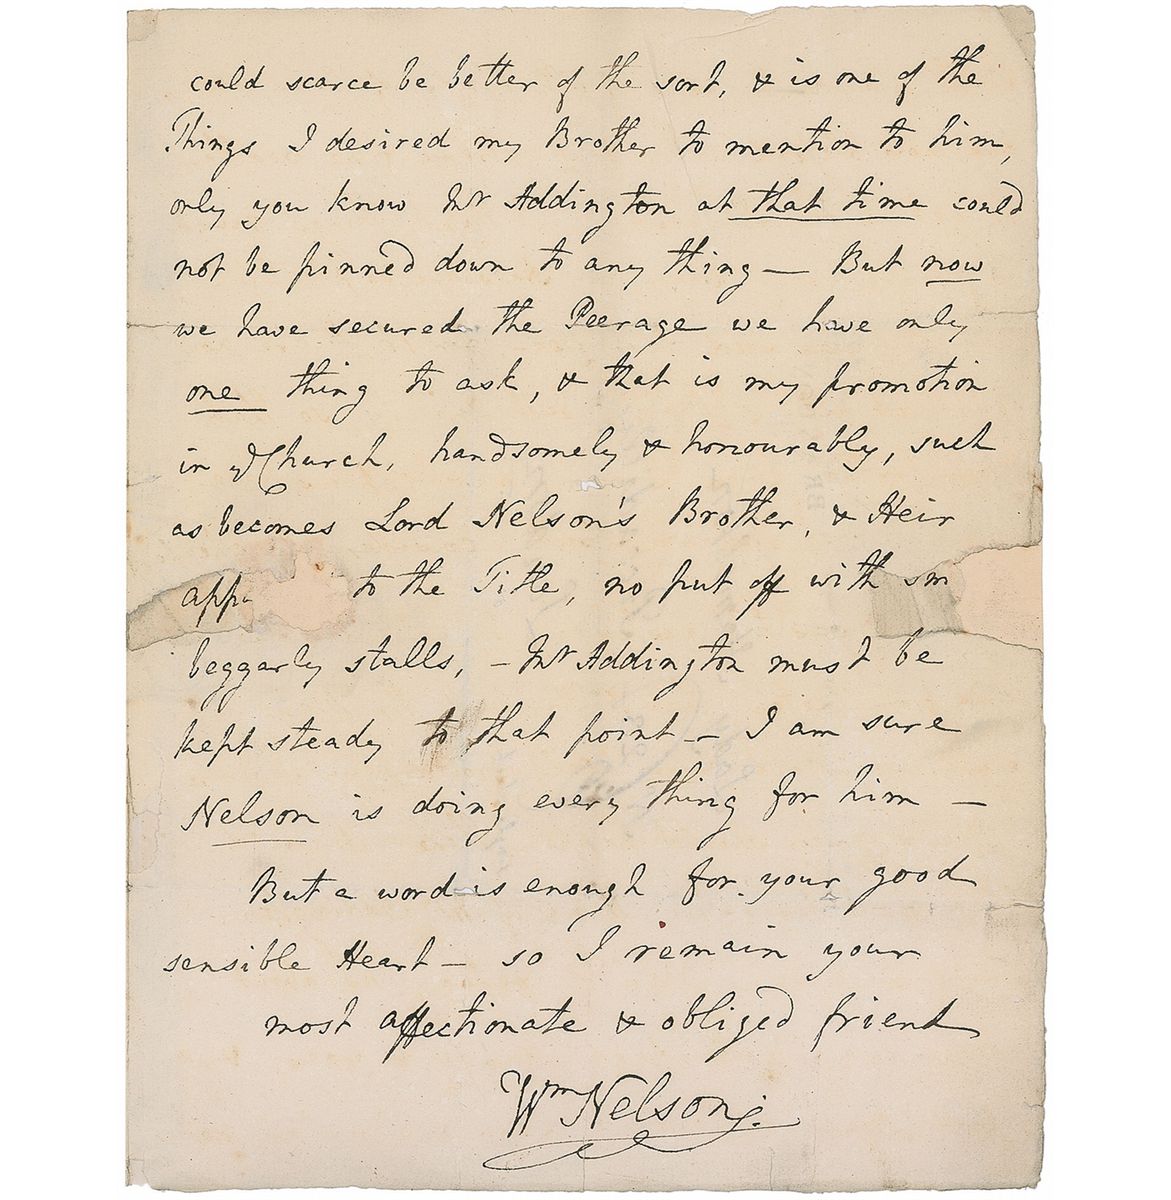 could scarce be better of the sort, & is one of the
Things I desired my Brother to mention to him,
only you know Mr Addington at that time could
not be pinned down to any thing — But now
we have secured the Peerage we have only
one thing to ask, & that is my promotion
in ye Church, handsomely & honourably, such
as becomes Lord Nelson's Brother, & Heir
to the Title, no put off with
beggarly stalls, — Mr Addington must be
kept steady to that point — I am sure
Nelson is doing every thing for him —
But a word is enough for your good
sensible Heart — so I remain your
most affectionate & obliged friend
Wm Nelson.